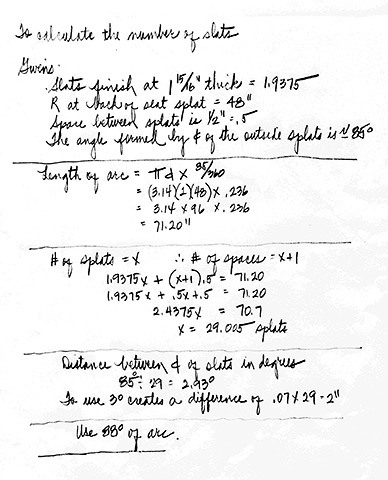 To calculate the number of slats
Givens:
. Slats finish at 1 15/16" thick = 1.9375
R at back of seat splat = 48"
Space between splats is ½" = .5
The angle formed by ℄ of the outside splats is ≈ 85°
Length of arc = π d x 85/360
= (3.14)(2)(48) x .236
= 3.14 x 96 x .236
= 71.20"
# of splats = x ∴ # of spaces = x+1
1.9375x + (x+1).5 = 71.20
1.9375x + .5x + .5 = 71.20
2.4375x = 70.7
x = 29.005 splats
Distance between ℄ of slats in degrees
85° ÷ 29 = 2.93°
To use 3° creates a difference of .07 x 29 = 2"
Use 88° of arc.